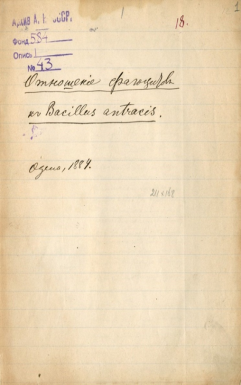 1
18.
Архив А. Н. СССР.
Фонд 584
Опись 1
№ 43
Отношение фагоцитов
к Bacillus antracis.
Одесса, 1884.